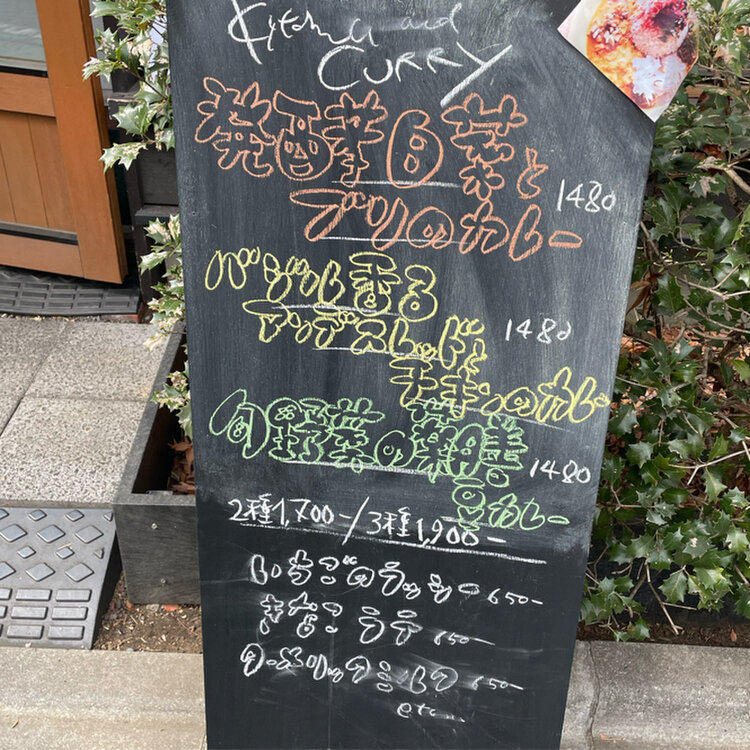 Kitchen and
CURRY
発酵白菜と
1480
ブリのカレー
バジル香る
アンデスレッドと
1480
チキンのカレー
旬野菜の薬膳
1480
豆カレー
2種1,700-/3種1,900-
いちごのラッシー650-
きなこラテ650-
ターメリックミルク650-
etc...